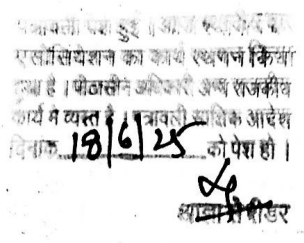 पत्रावली पेश हुई । आज
एसोसियेशन का कार्य स्थगन किया
हुआ है । पीठासीन अधिकारी अन्य राजकीय
कार्य में व्यस्त है । पत्रावली आदेश
दिनांक 18/6/25 को पेश हो ।
रीडर